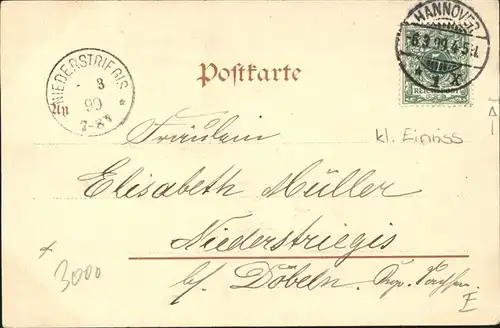 HANNOVER
6.3.99.4-5N.
* 1 X
REICHSPOST
NIEDERSTRIEGIS
3
99
7-8V
*
Postkarte
An
kl. Einriss
Fräulein
Elisabeth Müller
Niederstriegis
b/. Döbeln. Kgr. Sachsen.
3000
E